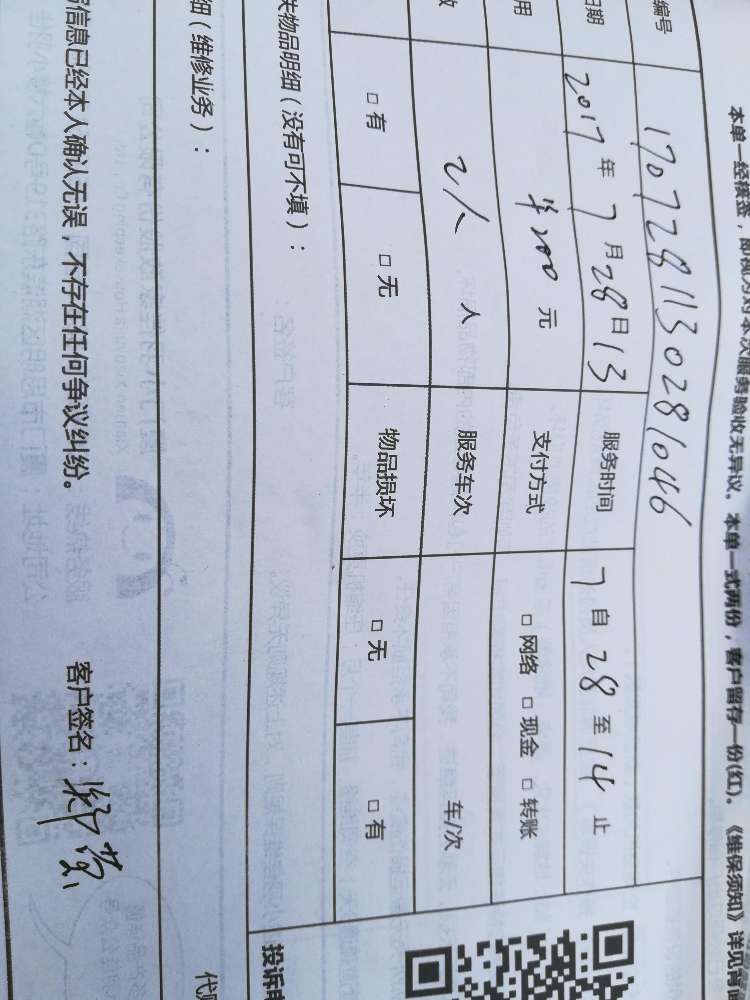 本单一经核签，即视为对本次服务验收无异议。本单一式两份，客户留存一份(红)。《维保须知》详见背
编号 170728113028 1046
日期 2017年7月28日13 服务时间 7自28至14止
用 ¥200元 支付方式 □网络 □现金 □转账
数 2人 人 服务车次 车/次
□有 □无 物品损坏 □无 □有
关物品明细（没有可不填）：
投诉电
细（维修业务）：
信息已经本人确认无误，不存在任何争议纠纷。 客户签名：